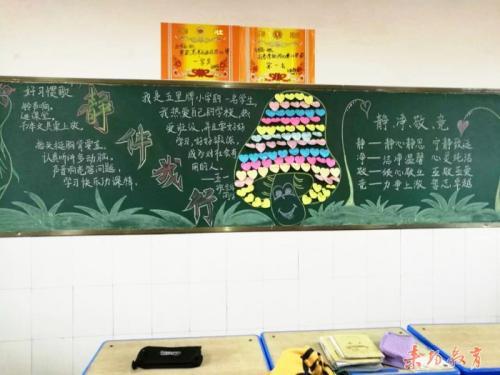 好习惯歌
铃声响,
进课堂,
书本文具桌上放,
抬头挺胸背要直,
认真听讲多动脑,
声音响亮答问题,
学习快乐功课棒。
静
伴
我
行
我是五里牌小学的一名学生
我热爱自己的学校,热
爱班级,并且要好好
学习,好好锻炼,
成为对社会有
用的人。
静、净、敬、竞
静——静心静思 宁静致远
净——洁净温馨 心灵纯洁
敬——
竞——力争上游 志当卓越
一等奖
第一名
素质教育